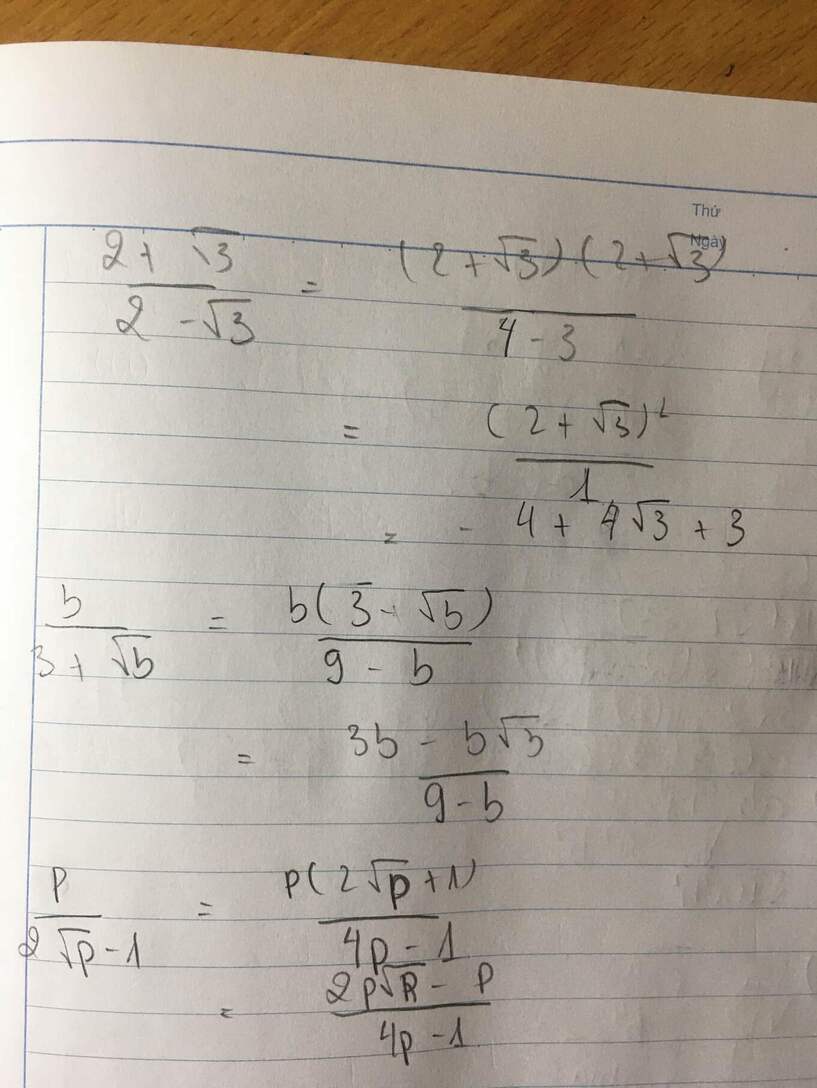 Thứ
Ngày
(2 + √3) / (2 - √3) = (2 + √3)(2 + √3) / (4 - 3)
= (2 + √3)² / 1
= - 4 + 4√3 + 3
b / (3 + √b) = b(3 - √b) / (9 - b)
= 3b - b√b / (9 - b)
p / (2√p - 1) = p(2√p + 1) / (4p - 1)
= (2p√p - p) / (4p - 1)